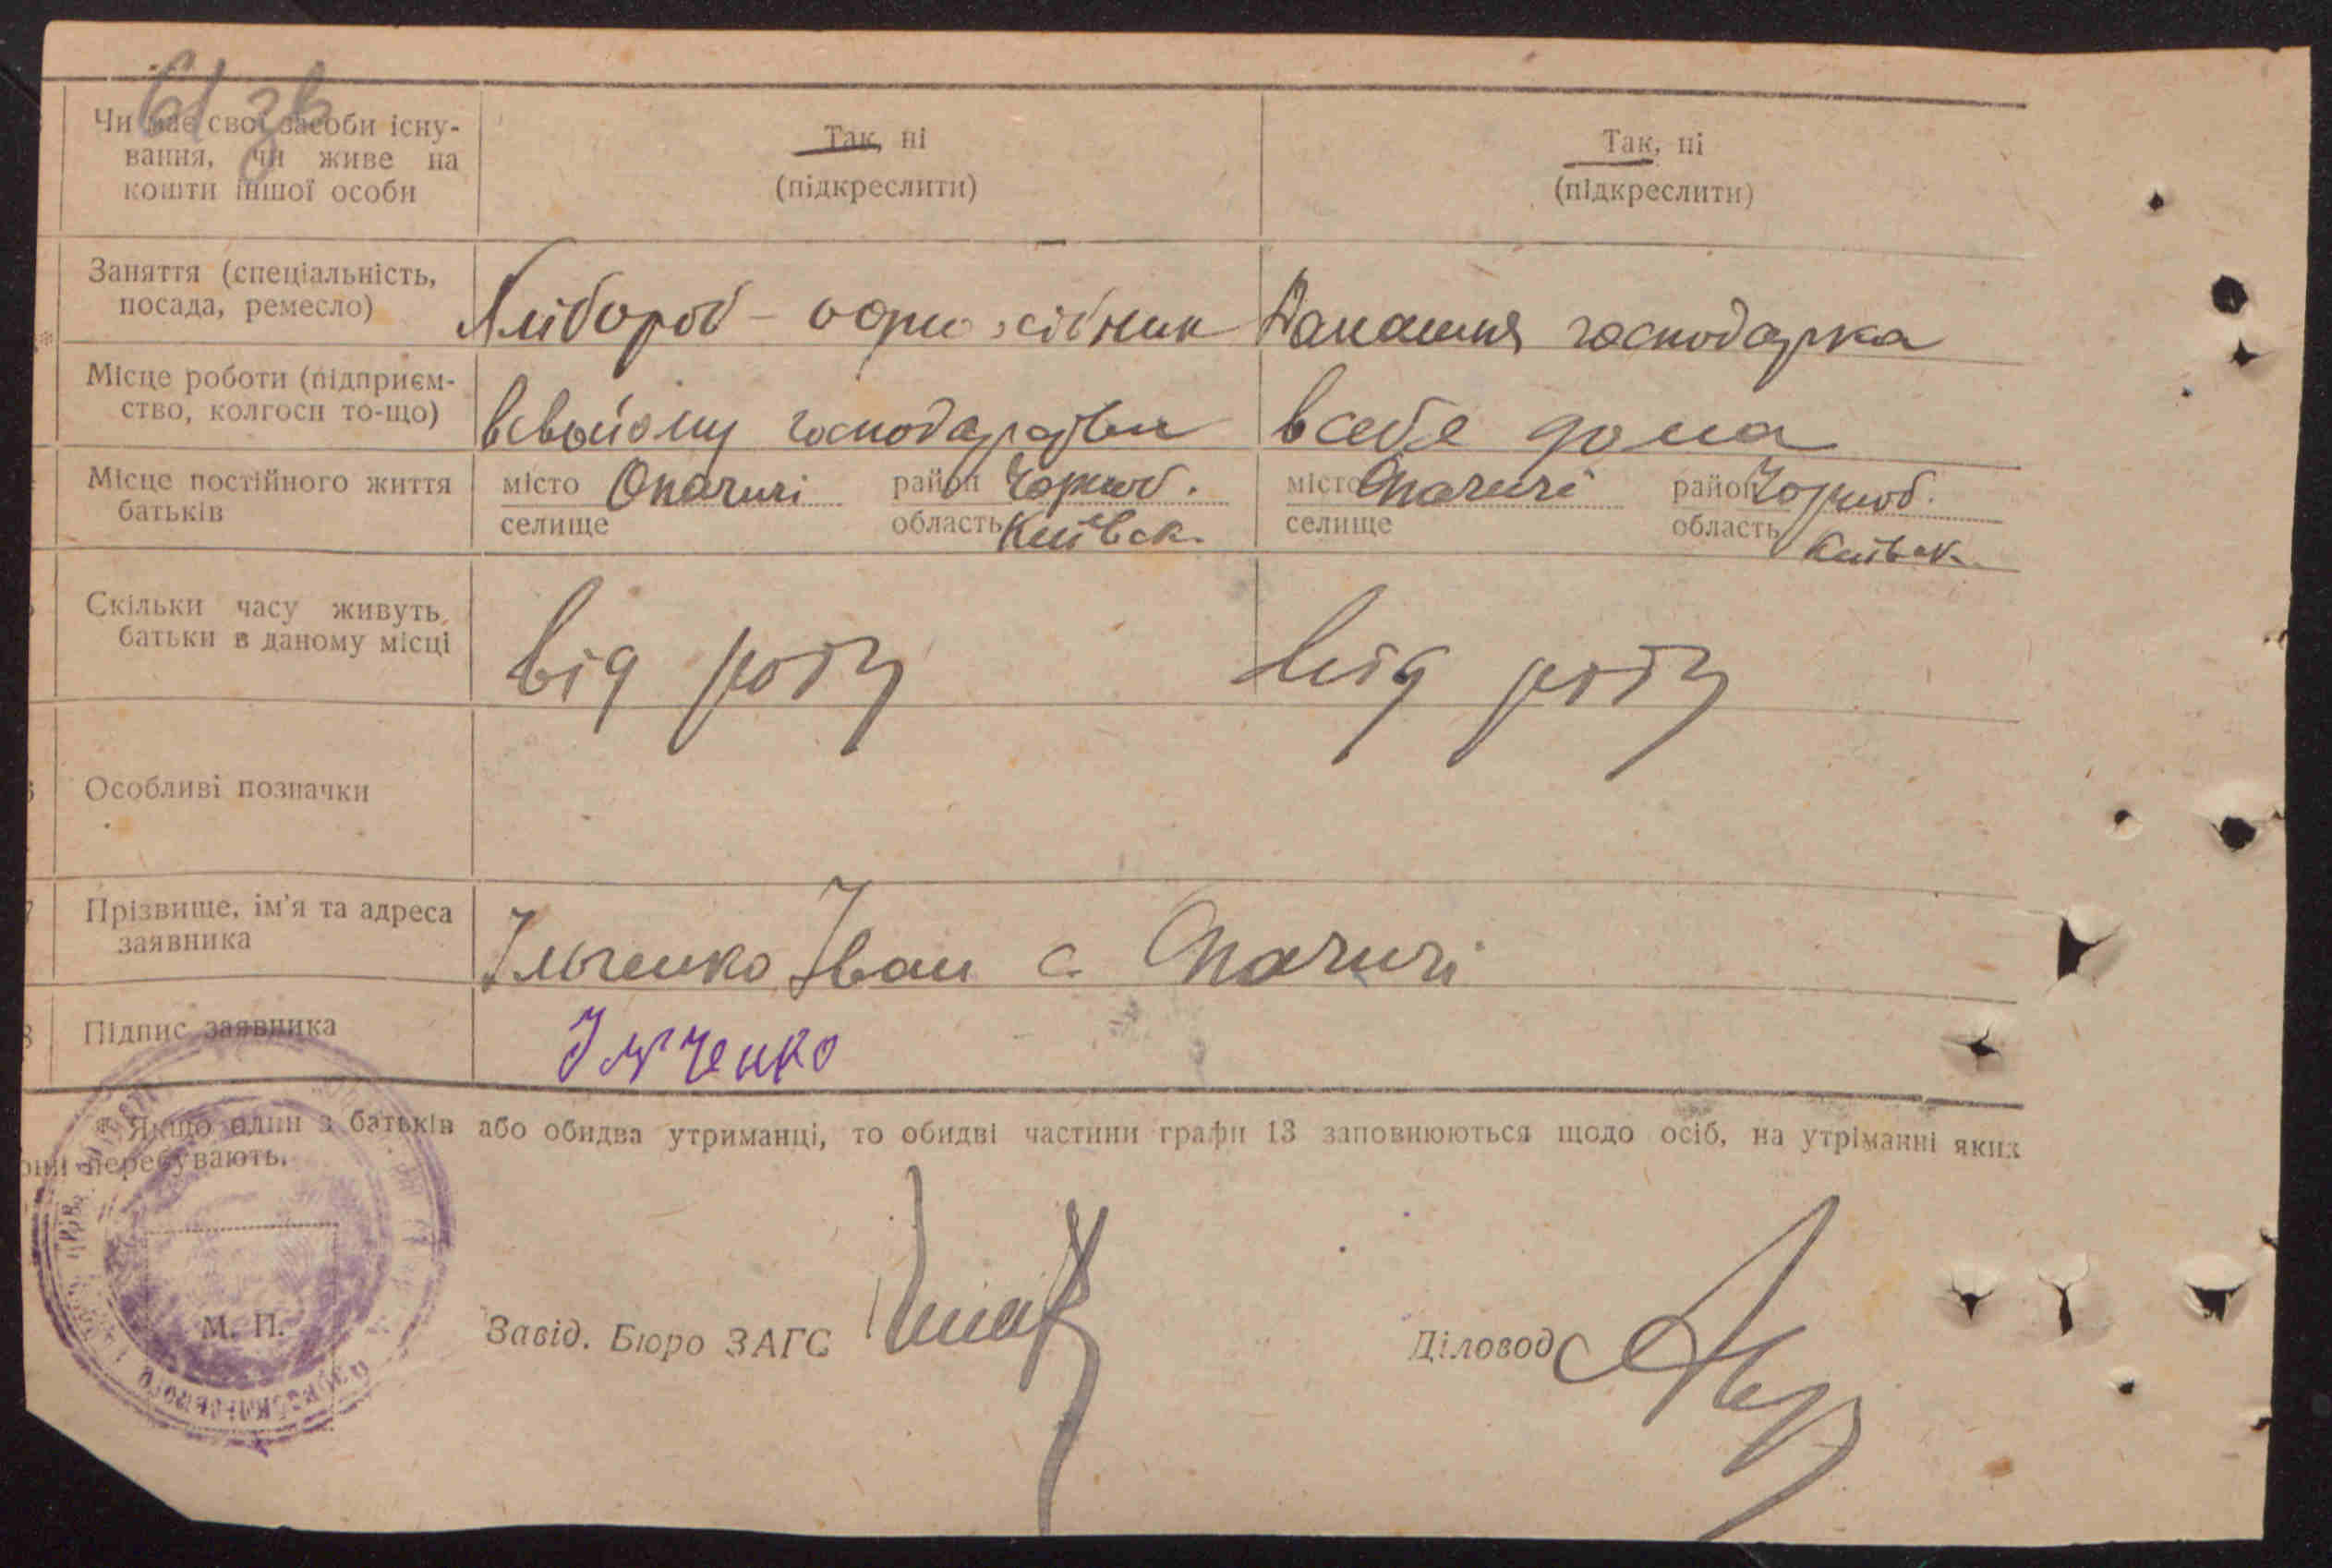 61 зв
Чи має свої засоби існу-
вання, чи живе на
кошти іншої особи
Так, ні
(підкреслити)
Так, ні
(підкреслити)
Заняття (спеціальність,
посада, ремесло)
Хлібороб – одноосібник
Домашня господарка
Місце роботи (підприєм-
ство, колгосп то-що)
в свойому господарстви
в себе дома
Місце постійного життя
батьків
місто Опачичі район Чорноб.
селище область Київск.
місто Опачичі район Чорноб.
селище область Київск.
Скільки часу живуть
батьки в даному місці
від роду
від роду
Особливі позначки
7 Прізвище, ім'я та адреса
заявника
Ільченко Іван с. Опачичі
8 Підпис заявника
Ільченко
* Якщо один з батьків або обидва утриманці, то обидві частини графи 13 заповнюються щодо осіб, на утріманні яких
они перебувають.
М. П.
Завід. Бюро ЗАГС
Діловод